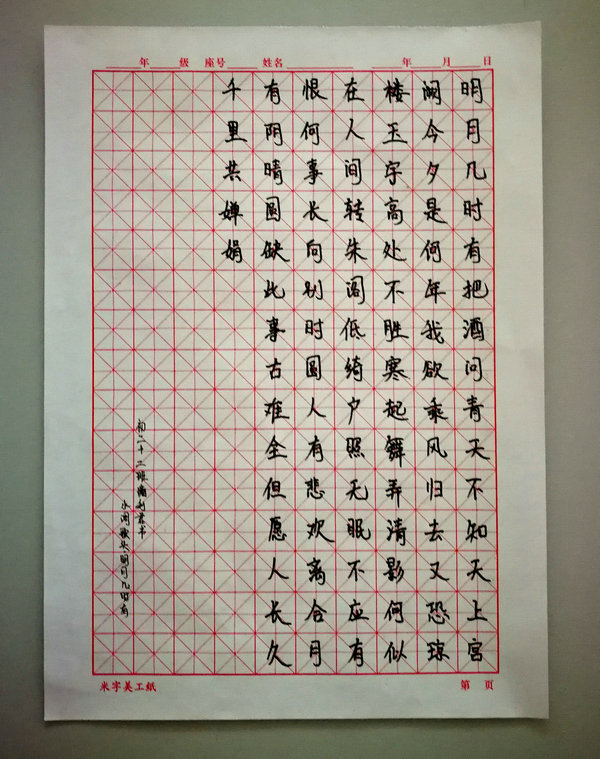 年 级 座号 姓名 年 月 日
明月几时有把酒问青天不知天上宫
阙今夕是何年我欲乘风归去又恐琼
楼玉宇高处不胜寒起舞弄清影何似
在人间转朱阁低绮户照无眠不应有
恨何事长向别时圆人有悲欢离合月
有阴晴圆缺此事古难全但愿人长久
千里共婵娟
初二十二班 书
水调歌头明月几时有
米字美工纸 第 页